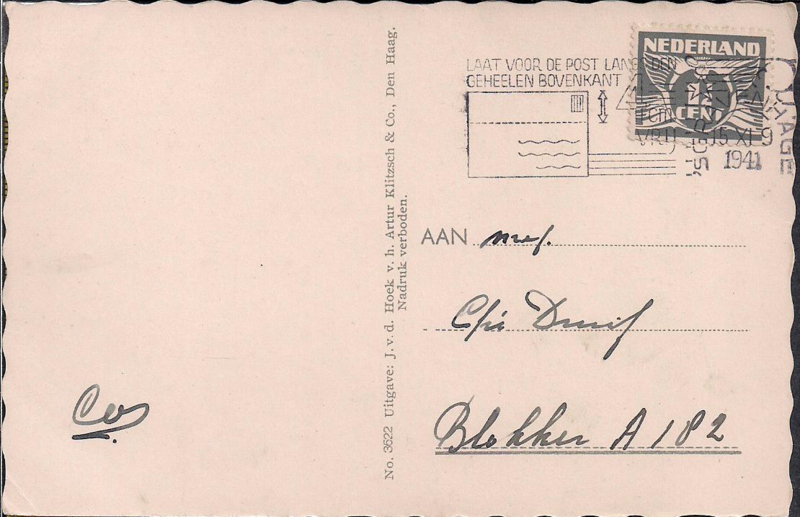 LAAT VOOR DE POST LANGS DEN
GEHEELEN BOVENKANT
NEDERLAND
CENT
15 XI 9
1941
HAGE
No. 3622 Uitgave: J. v. d. Hoek v. h. Artur Klitzsch & Co., Den Haag.
Nadruk verboden.
AAN mej.
Blokker A 182